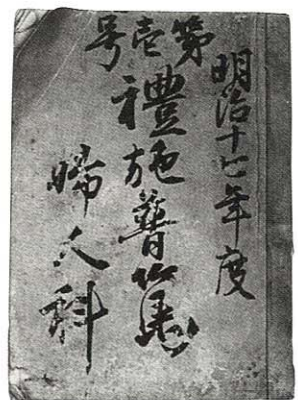 明治十七年度
第壱号
禮施普篤
婦人科